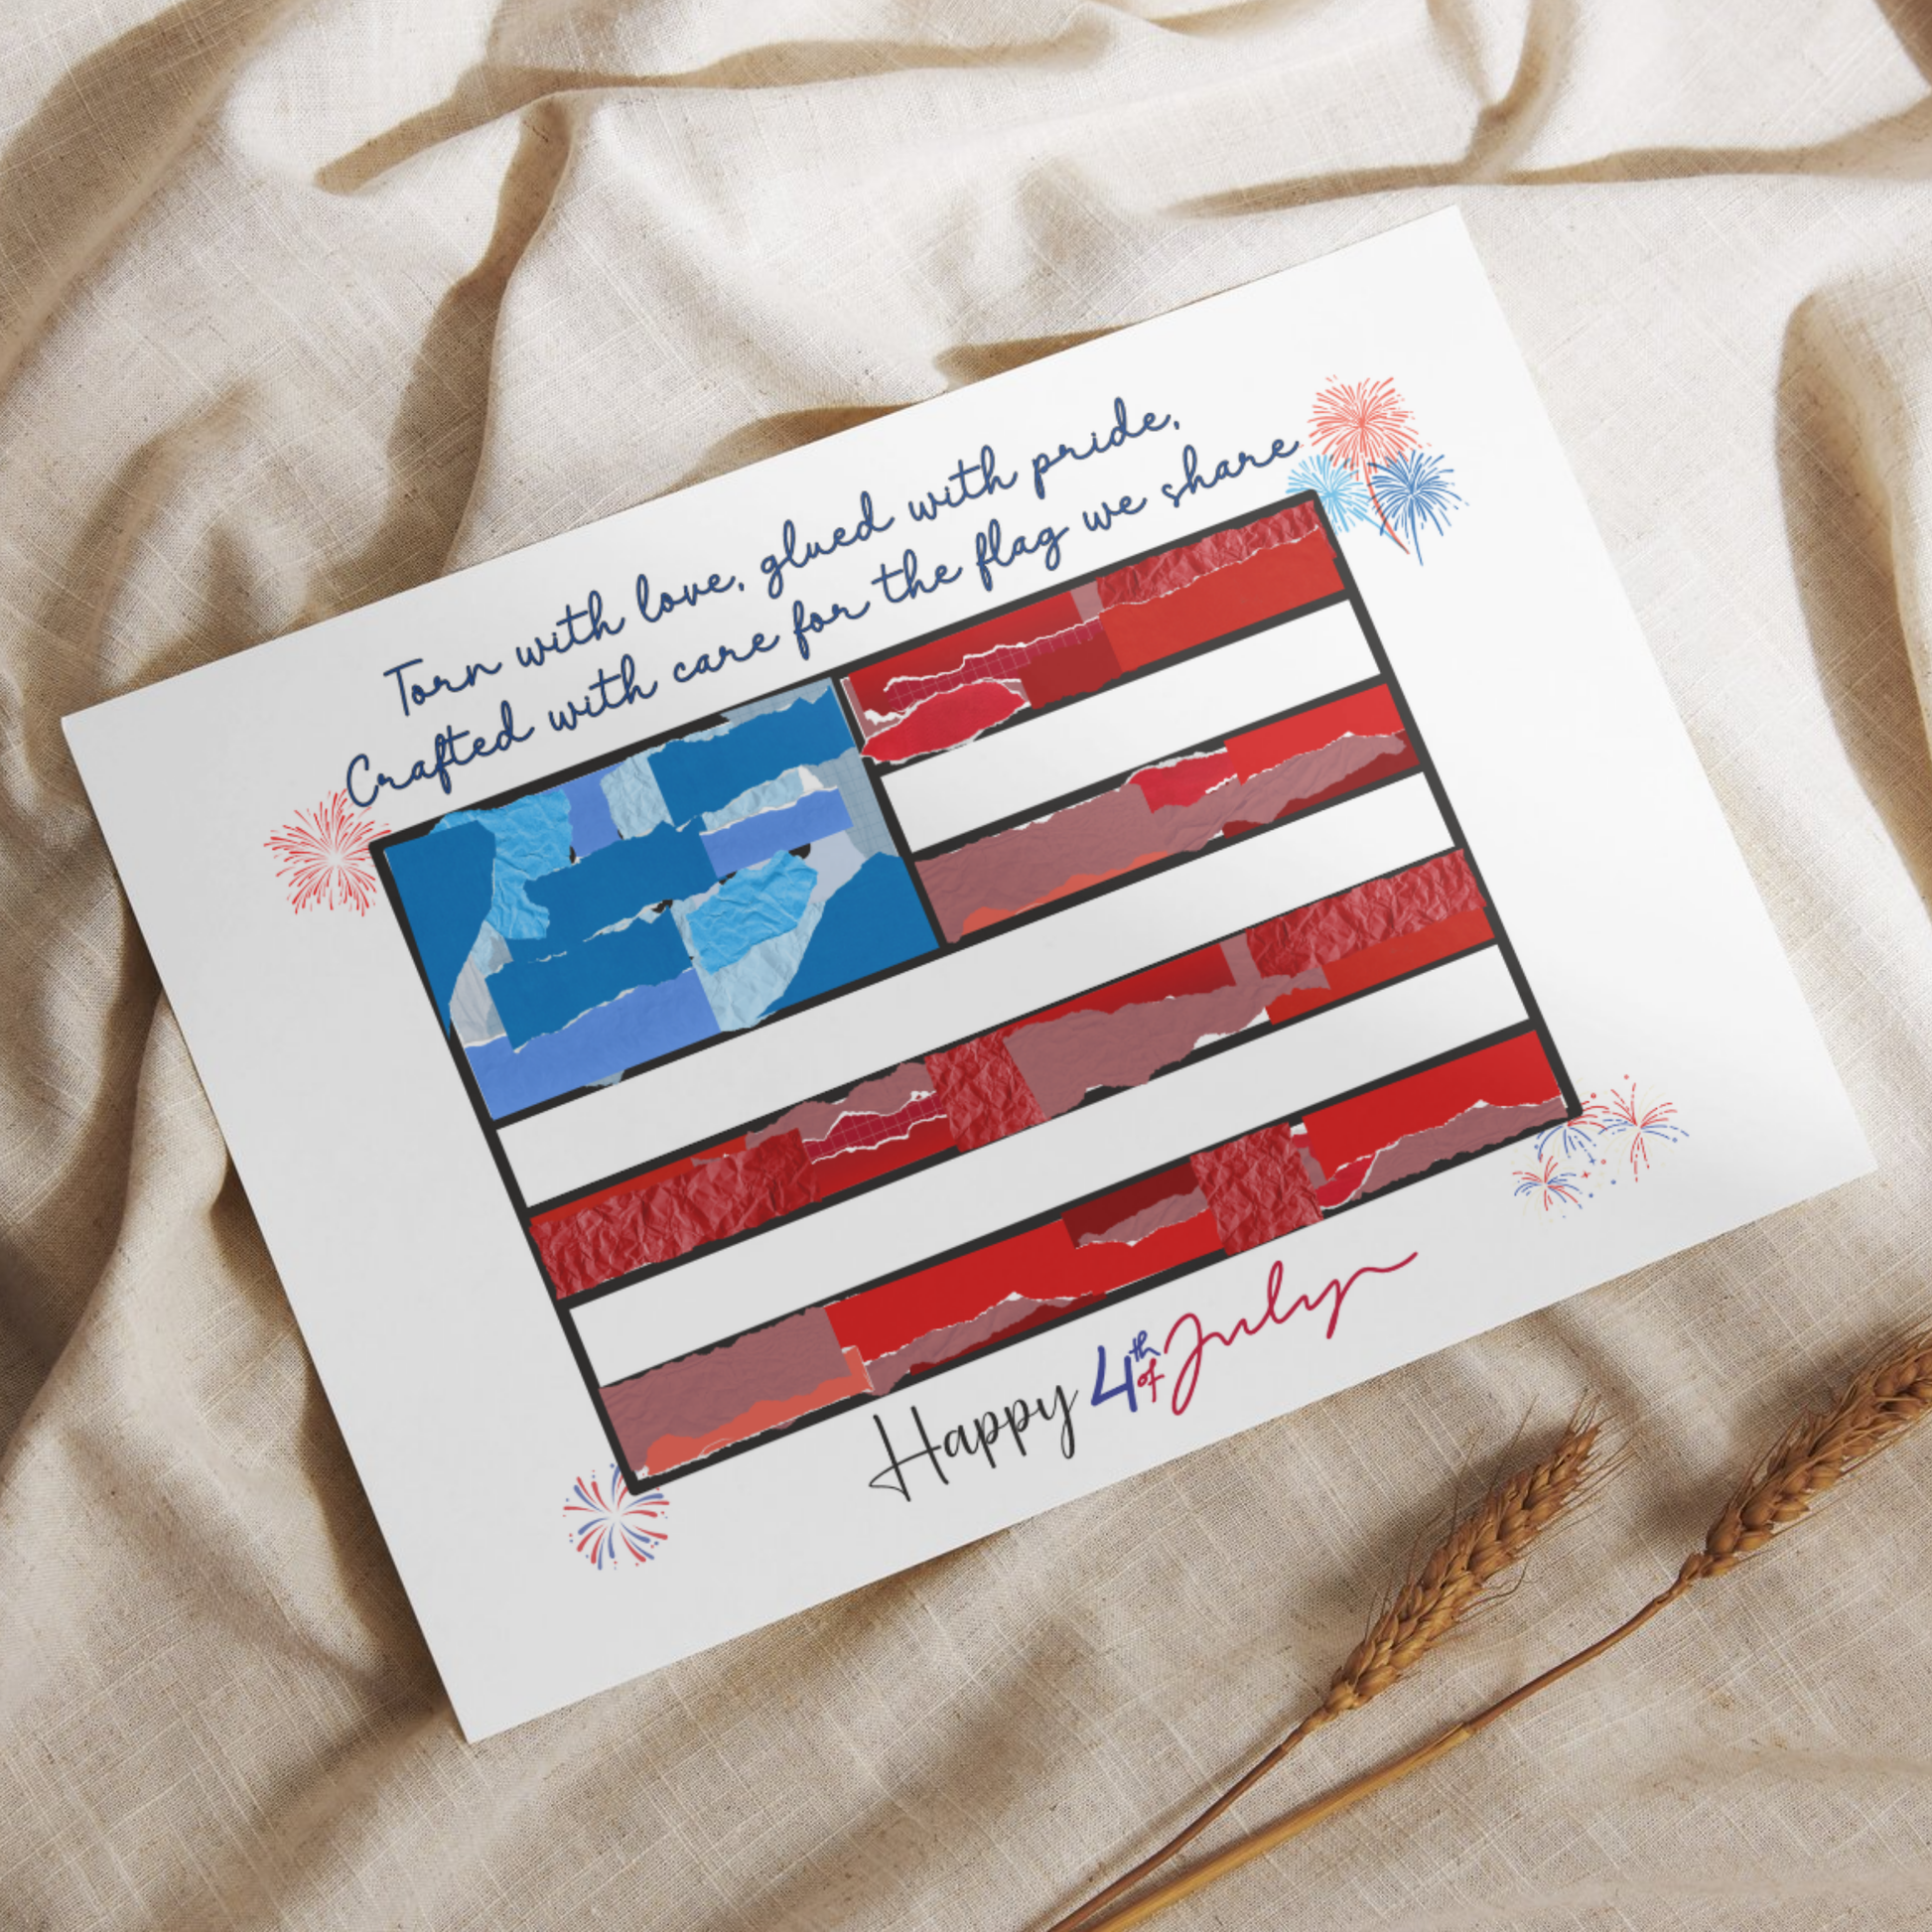 Torn with love, glued with pride,
Crafted with care for the flag we share
Happy 4th of July